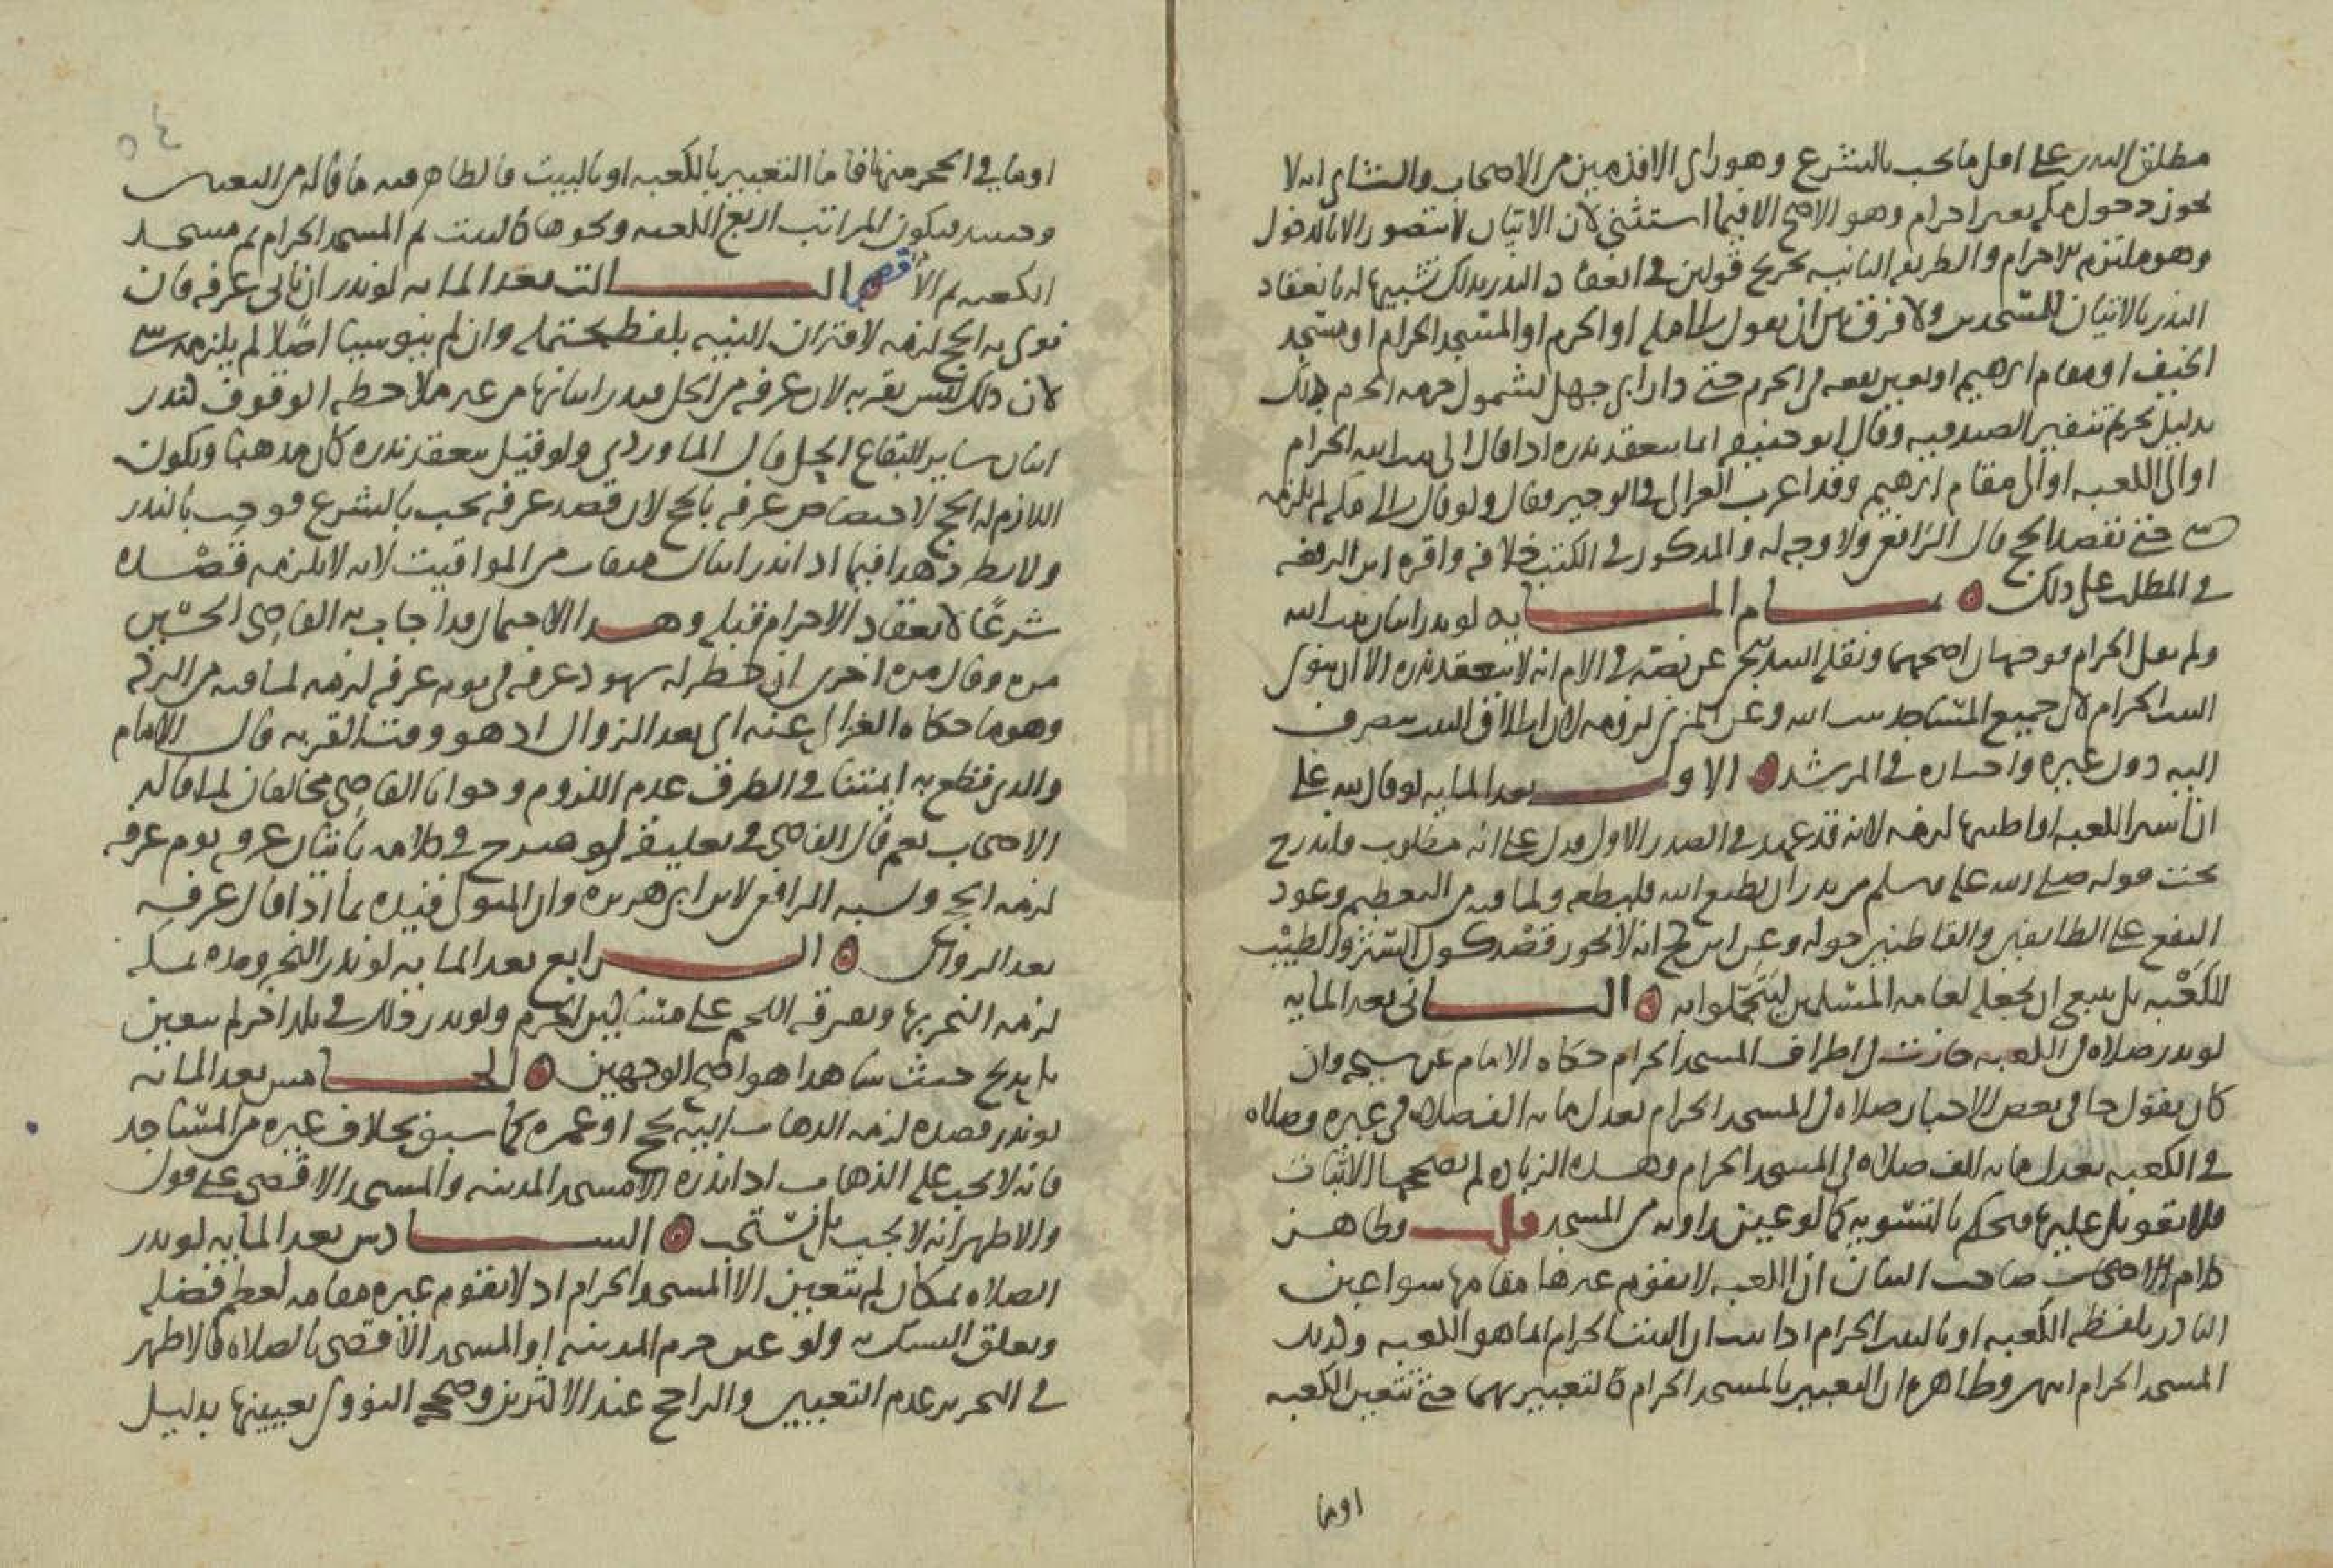 مطلق النذر على اقل ما يجب بالشرع وهو راي الاقدمين من الاصحاب والثاني انه لا
يجوز دخول مكه بغير احرام وهو الاصح الا فيما استثني لان الاتيان لا يتصور الا بالدخول
وهو ملتزم للاحرام والطريقه الثانيه تخريج قولين في انعقاد النذر بذلك تشبيها له بانعقاد
النذر بالاتيان للمسجدين ولا فرق بين ان يقول الى مكه او الحرم او المسجد الحرام او مسجد
الخيف او مقام ابرهيم او بغير بقعه في الحرم حتى دار ابي جهل لشمول حرمه الحرم ذلك
بدليل تحريم تنفير الصيد فيه وقال ابو حنيفه انما ينعقد نذره اذا قال الى بيت الله الحرام
او الى الكعبه او الى مقام ابرهيم وقد اغرب الغزالي في الوجيز فقال ولو قال الى مكه لم يلزمه
شي حتى يقصد الحج قال الرافعي ولا وجه له والمذكور في الكتب خلافه واقره ابن الرفعه
في المطلب على ذلك تمام المايه لو نذر اتيان بيت الله
ولم يقل الحرام فوجهان اصحهما ونقله البندنيجي عن نصه في الام انه لا ينعقد نذره الا ان ينوي
البيت الحرام لان جميع المساجد بيت الله وعن المزني لزومه لان اطلاق البيت ينصرف
اليه دون غيره واختاره في المرشد الاول بعد المايه لو قال لله على
ان استر الكعبه او اطيبها لزمه لانه قد عهد في الصدر الاول فدل على انه مطلوب فاندرج
تحت قوله صلى الله عليه وسلم من نذر ان يطيع الله فليطعه ولما فيه من التعظيم وعود
النفع على الطايفين والقاطنين حوله وعن ابن كج انه لا يجوز قصد كون الستر والطيب
للكعبه بل ينبغي ان يجعله لعامه المسلمين ليتجملوا به الثاني بعد المايه
لو نذر صلاه في الكعبه جازت في اطراف المسجد الحرام حكاه الامام عن شيخه وان
كان يقول جا في بعض الاخبار صلاه في المسجد الحرام تعدل مايه الف صلاه في غيره وصلاه
في الكعبه تعدل مايه الف صلاه في المسجد الحرام وهذه الزياده لم يصححها الاثبات
فلا تعويل عليها فيحكم بالتسويه كما لو عين زاويه من المسجد قلت وظاهر
كلام الاصحاب صاحب البيان ان الكعبه لا يقوم غيرها مقامها سوا عين
الناذر بلفظه الكعبه او بالبيت الحرام اذ البيت الحرام انما هو الكعبه ولذلك
المسجد الحرام انتهى وظاهره ان التعبير بالمسجد الحرام كالتعبير بهما حتى تتعين الكعبه
اوما
٥٤
او ما في الحجر منها فاما التعبير بالكعبه او بالبيت فالظاهر فيه ما قاله من التعين
وحينئذ فيكون المراتب اربع الكعبه ونحوها كالبيت ثم المسجد الحرام ثم مسجد
الكعبه ثم الاقصى الثالث بعد المايه لو نذر ان ياتي عرفه فان
نوى به الحج لزمه لاقتران النيه بلفظ يحتمله وان لم ينو شيا اصلا لم يلزمه شي
لان ذلك ليس بقربه لان عرفه من الحل فنذر اتيانها من غير ملاحظه الوقوف كنذر
اتيان ساير البقاع الحل قال الماوردي ولو قيل ينعقد نذره كان مذهبا ويكون
اللازم له الحج لاختصاص عرفه بالحج لان قصد عرفه يجب بالشرع فوجب بالنذر
ولا يطرد هذا فيما اذا نذر اتيان ميقات من المواقيت لانه لا يلزمه قصده
شرعا لانعقاد الاحرام قبله وهذا الاحتمال قد اجاب به القاضي الحسين
مره وقال مره اخرى ان خطر له شهود عرفه في يوم عرفه لزمه لما فيه من البركه
وهو ما حكاه الغزالي عنه اي بعد الزوال اذ هو وقت القربه قال الامام
والذي قطع به ايمتنا في الطرق عدم اللزوم وجوابا القاضي مخالفان لما قاله
الاصحاب نعم قال القاضي في تعليقه لو صرح في كلامه باتيان عرفه يوم عرفه
لزمه الحج ونسبه الرافعي لابن ابي هريره وان المتولي قيده بما اذا قال عرفه
بعد الزوال الرابع بعد المايه لو نذر النحر وحده بمكه
لزمه النحر بها وتفرقه اللحم على مساكين الحرم ولو نذر ذلك في بلد اخر لم يتعين
بل يذبح حيث شا هذا هو اصح الوجهين الخامس بعد المايه
لو نذر قصده لزمه الذهاب اليه بحج او عمره كما سبق بخلاف غيره من المساجد
فانه لا يجب عليه الذهاب اذا نذره الا مسجد المدينه والمسجد الاقصى على قول
والاظهر انه لا يجب بل يستحب السادس بعد المايه لو نذر
الصلاه بمكان لم يتعين الا المسجد الحرام اذ لا يقوم غيره مقامه لعظم فضله
وتعلق النسك به ولو عين حرم المدينه او المسجد الاقصى بالصلاه فالاظهر
في المحرر عدم التعيين والراجح عند الاكثرين وصححه النووي تعيينها بدليل